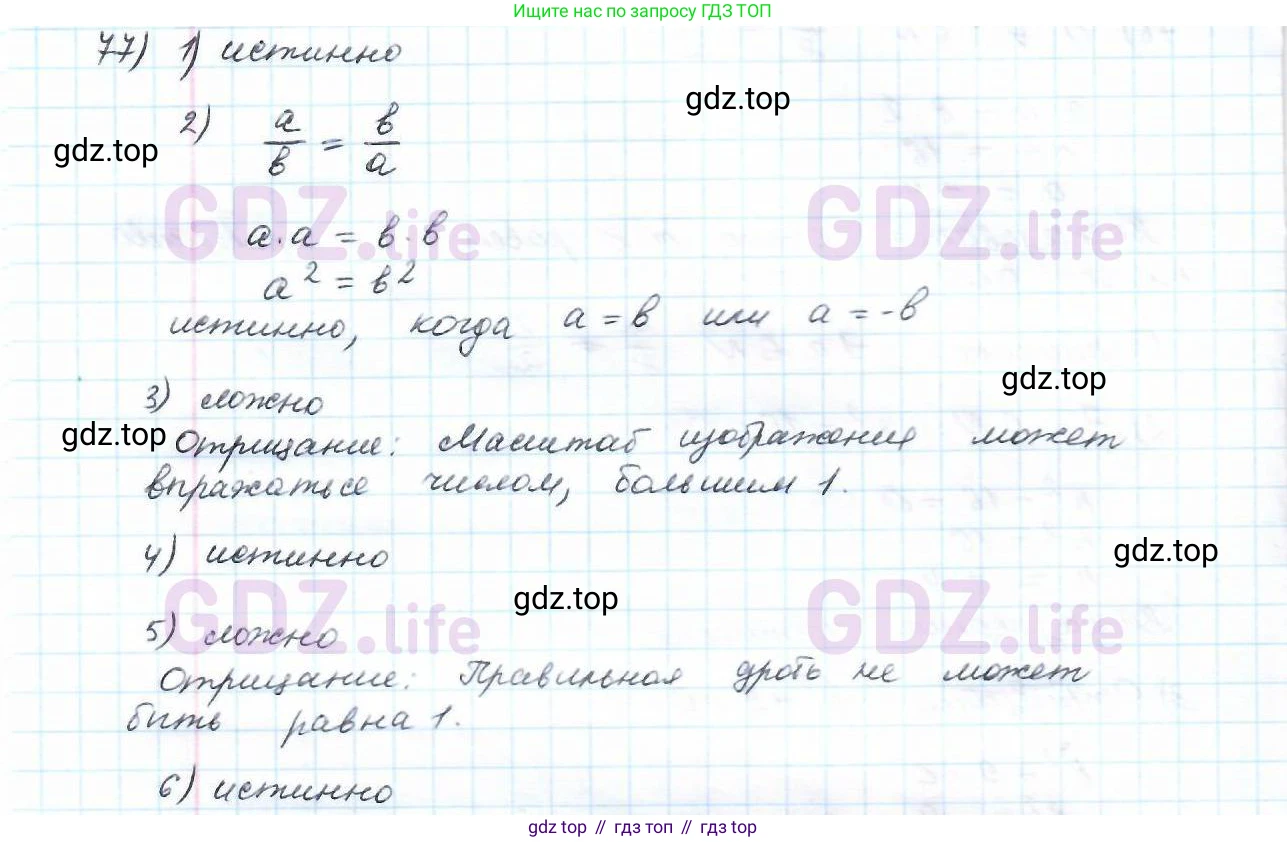 Ищите нас по запросу ГДЗ ТОП
77) 1) истинно
gdz.top
2) a/в = в/a
gdz.top
GDZ.life GDZ.life
a·a = в·в
a² = в²
истинно, когда a = в или a = -в
3) ложно
gdz.top
gdz.top
Отрицание: Масштаб изображения может
впражаться числом, большим 1.
4) истинно
gdz.top
GDZ.life GDZ.life
gdz.top
5) ложно
Отрицание: Правильная дроть не может
быть равна 1.
6) истинно
gdz top // гдз топ // гдз top